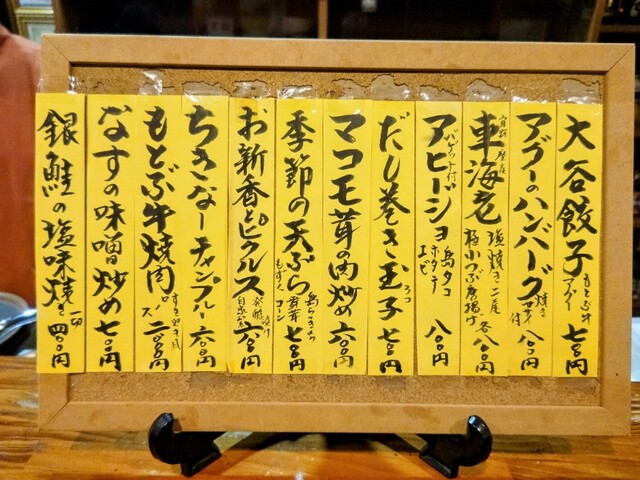 大谷餃子 もとぶ牛 アグー 七〇〇円
アグーのハンバーグ 焼き 野菜付 一八〇〇円
車海老 塩焼き二尾 極小つぶ唐揚げ 各八〇〇円
アヒージョ バゲット付 島タコ ホタテ エビ 八〇〇円
だし巻き玉子 七〇〇円
マコモ茸の肉炒め 六〇〇円
季節の天ぷら 島らっきょう もずく コーン 七〇〇円
お新香とピクルス 発酵漬け 自家製 六〇〇円
ちきなーチャンプルー 六〇〇円
もとぶ牛焼肉 二〇〇〇円
なすの味噌炒め 七〇〇円
銀鮭の塩味焼き 一切 四〇〇円